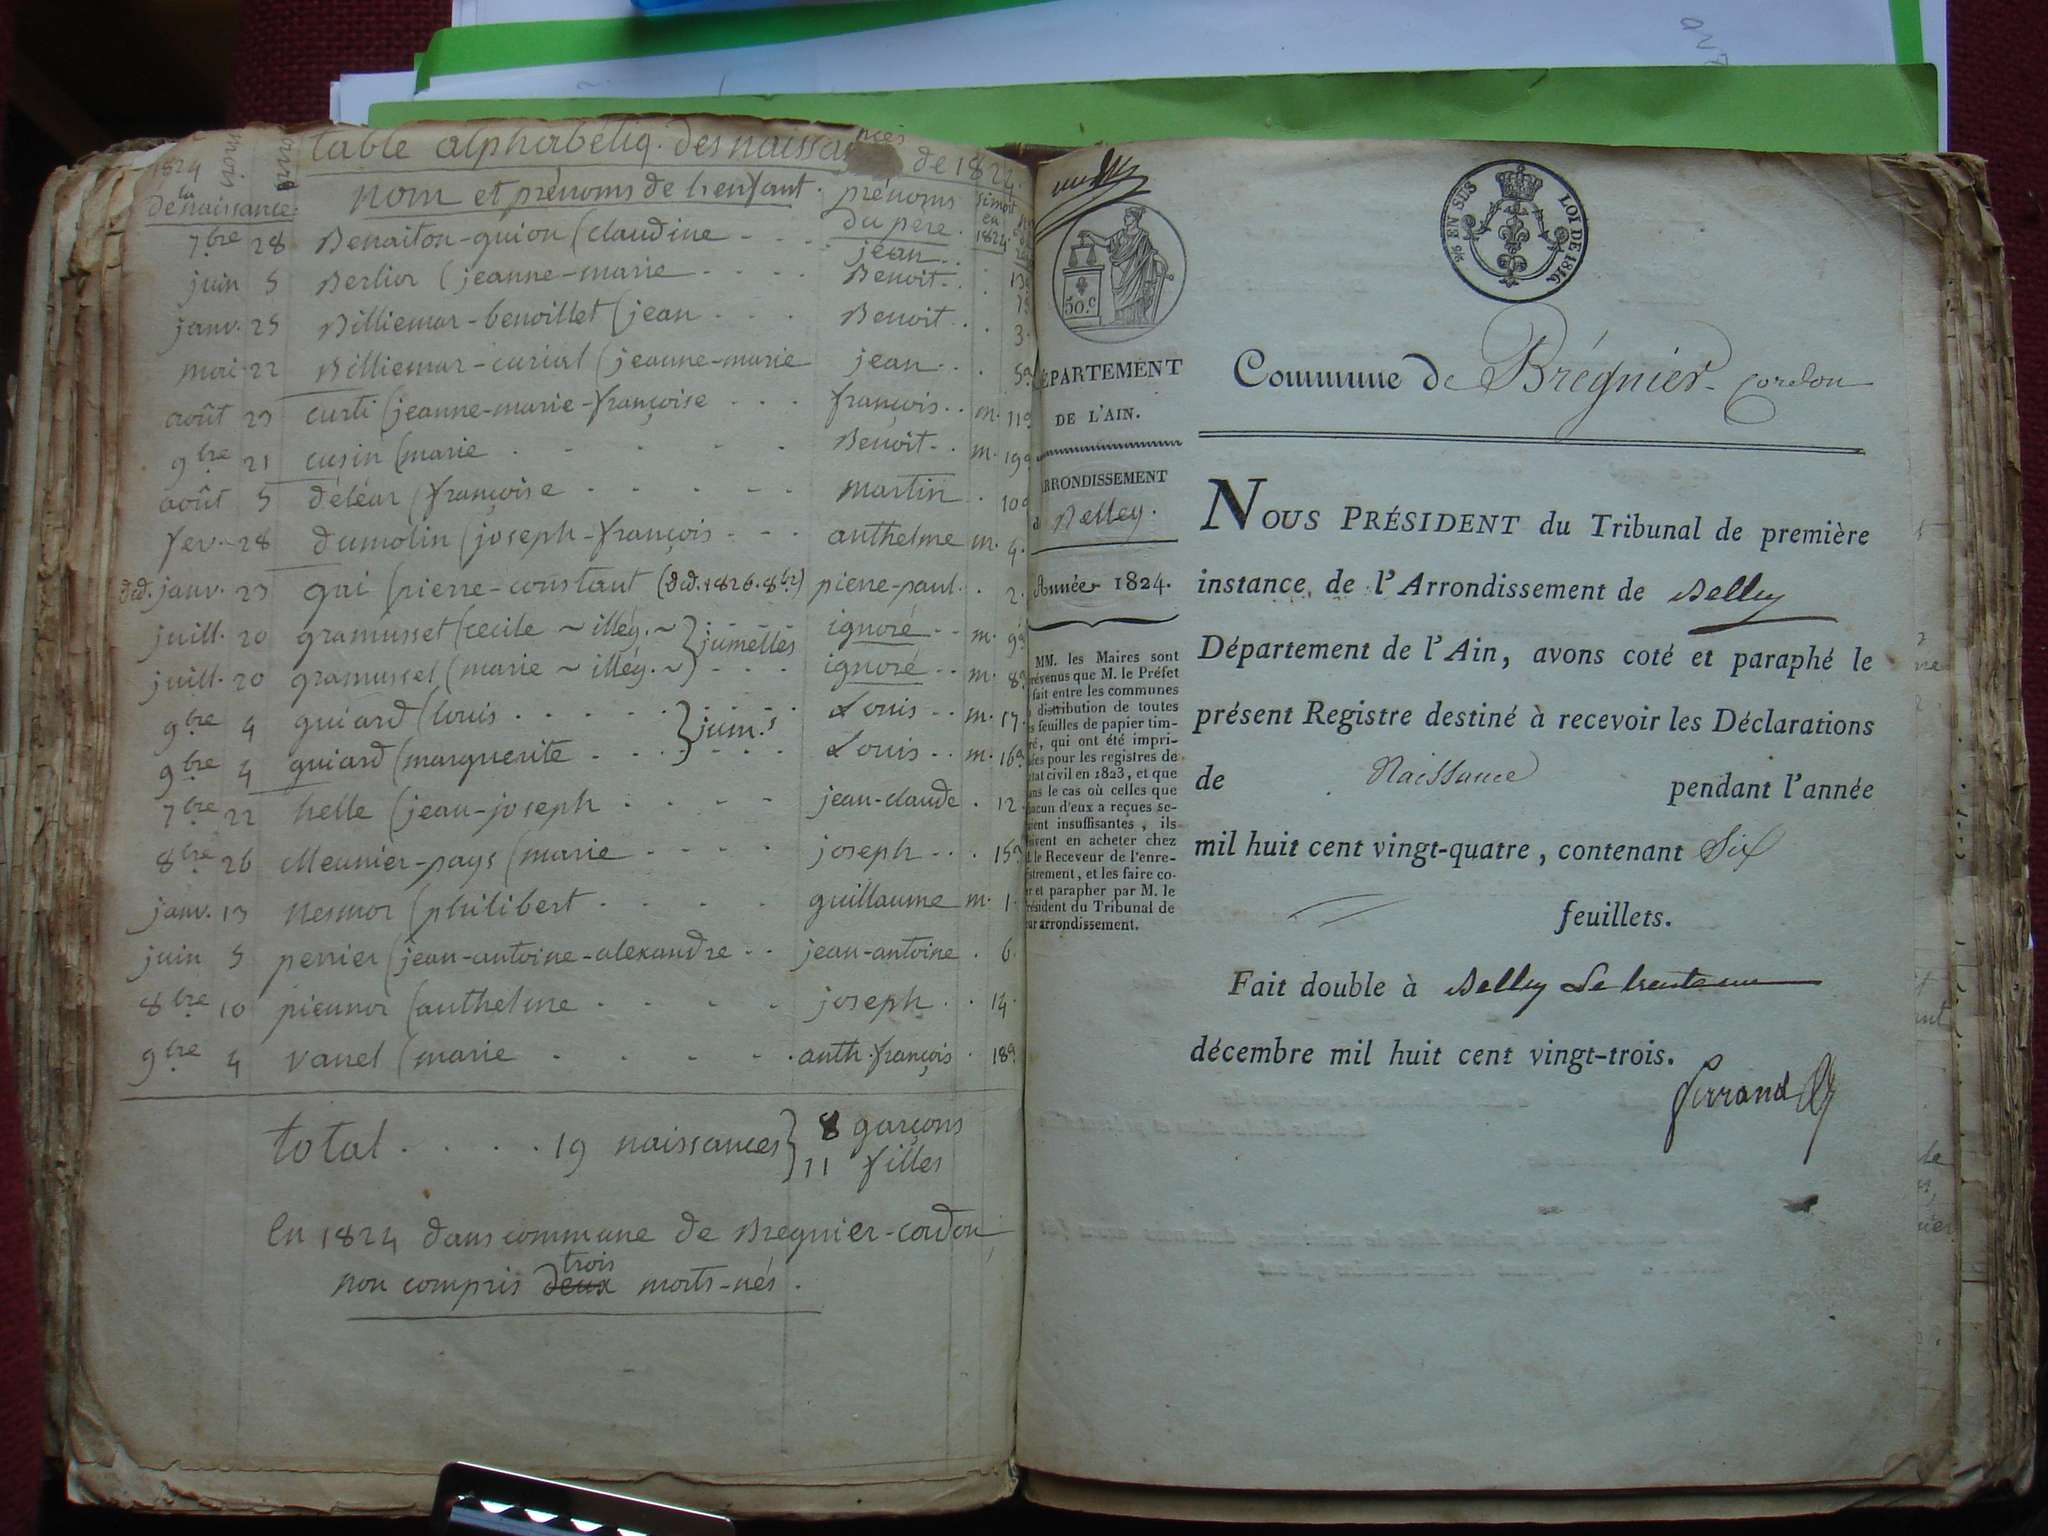 table alphabétiq. des naissances de 1824.
1824 mois jour
de la naissance.
nom et prénoms de l'enfant.
prénoms du père.
si mort en 1824.
7bre 28 Benaiton-guion (claudine - - - jean . .
juin 5 Berlior (jeanne-marie - - - - Benoit . . 13
janv. 25 Billiemar-benoillet (jean - - - Benoit . . 3.
mai 22 Billiemar-curial (jeanne-marie jean . . . 5
août 23 curti (jeanne-marie-françoise - - - françois . . m. 11
9bre 21 cusin (marie - - - - - Benoit . . m. 19
août 5 déléar (françoise - - - - - martin . 10
fev. 28 dumolin (joseph-françois - - - anthelme m. 4.
déd. janv. 23 gui (pierre-constant (déd. 1826. 8bre) pierre-paul . . 2.
juill. 20 gramusset (cecile ~ illég. ~ } jumelles ignoré - - m. 9
juill. 20 gramusset (marie ~ illég. ~ } - - - ignoré - - m. 8
9bre 4 guiard (louis . . . . . . } jum.s Louis - - m. 17.
9bre 4 guiard (marguerite . . . . } Louis - - m. 16
7bre 22 helle (jean-joseph - - - - jean-claude . 12.
8bre 26 Meunier-pays (marie - - - - joseph - . . 15
janv. 13 nesmor (philibert - - - - guillaume m. 1.
juin 5 perrier (jean-antoine-alexandre - - jean-antoine . 6.
8bre 10 picunor (anthelme - - - - joseph . . 14.
9bre 4 vanel (marie - - - - - anth. françois . 18
total . . . . . 19 naissances } 8 garçons
11 filles
en 1824 dans commune de Bregnier-cordon,
trois
non compris deux morts-nés.
50.C
96 EN SUS LOI DE 1816.
DÉPARTEMENT
DE L'AIN.
ARRONDISSEMENT
d Belley.
Année 1824.
MM. les Maires sont
prévenus que M. le Préfet
fait entre les communes
distribution de toutes
feuilles de papier tim-
bré, qui ont été impri-
mées pour les registres de
l'état civil en 1823, et que
dans le cas où celles que
chacun d'eux a reçues se-
raient insuffisantes, ils
doivent en acheter chez
le Receveur de l'enre-
gistrement, et les faire co-
ter et parapher par M. le
Président du Tribunal de
leur arrondissement.
Commune de Brégnier-Cordon
NOUS PRÉSIDENT du Tribunal de première
instance, de l'Arrondissement de Belley
Département de l'Ain, avons coté et paraphé le
présent Registre destiné à recevoir les Déclarations
de Naissance pendant l'année
mil huit cent vingt-quatre, contenant Six
feuillets.
Fait double à Belley Le trente un
décembre mil huit cent vingt-trois.